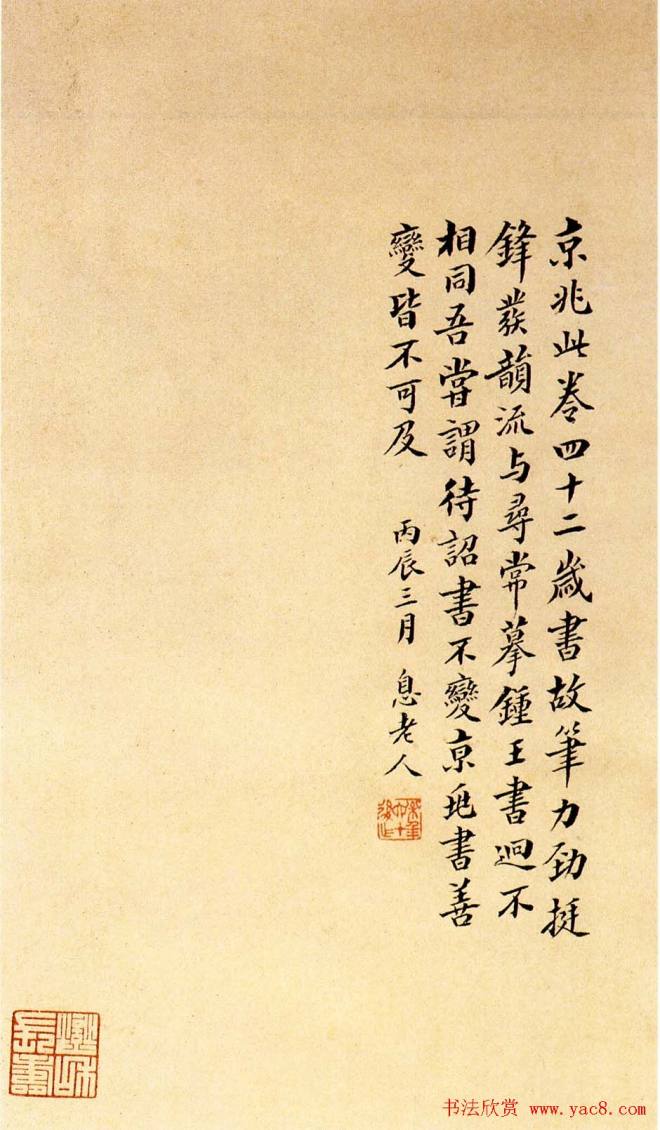 京兆此卷四十二歲書故筆力勁挺
鋒發韻流与尋常摹鍾王書迥不
相同吾嘗謂待詔書不變京兆書善
變皆不可及
丙辰三月 息老人
书法欣赏 www.yac8.com